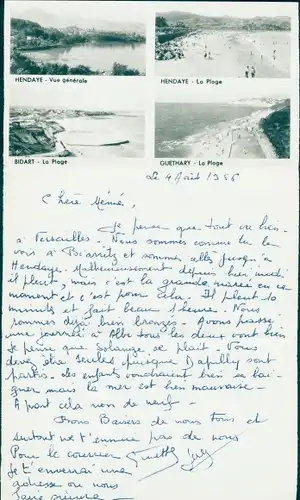 HENDAYE - Vue générale
HENDAYE - La Plage
BIDART - La Plage
GUETHARY - La Plage
Le 4 Août 1956
Chère Mémé,
Je pense que tout va bien
à Versailles. Nous sommes comme tu le
vois à Biarritz et sommes allés jusqu'à
Hendaye. Malheureusement depuis hier midi
il pleut, mais c'est la grande marée en ce
moment et c'est pour cela. Il pleut 10
minutes et fait beau 1 heure. Nous
sommes déjà bien bronzés. Avons passé
une journée à Albi tous les deux vont bien
Je pense que Solange se plaît. Vous
devez être seules puisque sont
partis. Les enfants voudraient bien se bai-
gner mais la mer est bien mauvaise -
A part cela rien de neuf -
Bons Baisers de nous Tous et
surtout ne t'ennuie pas de nous
Pour le courrier
Je t'enverrai une
adresse ou nous
faire suivre -